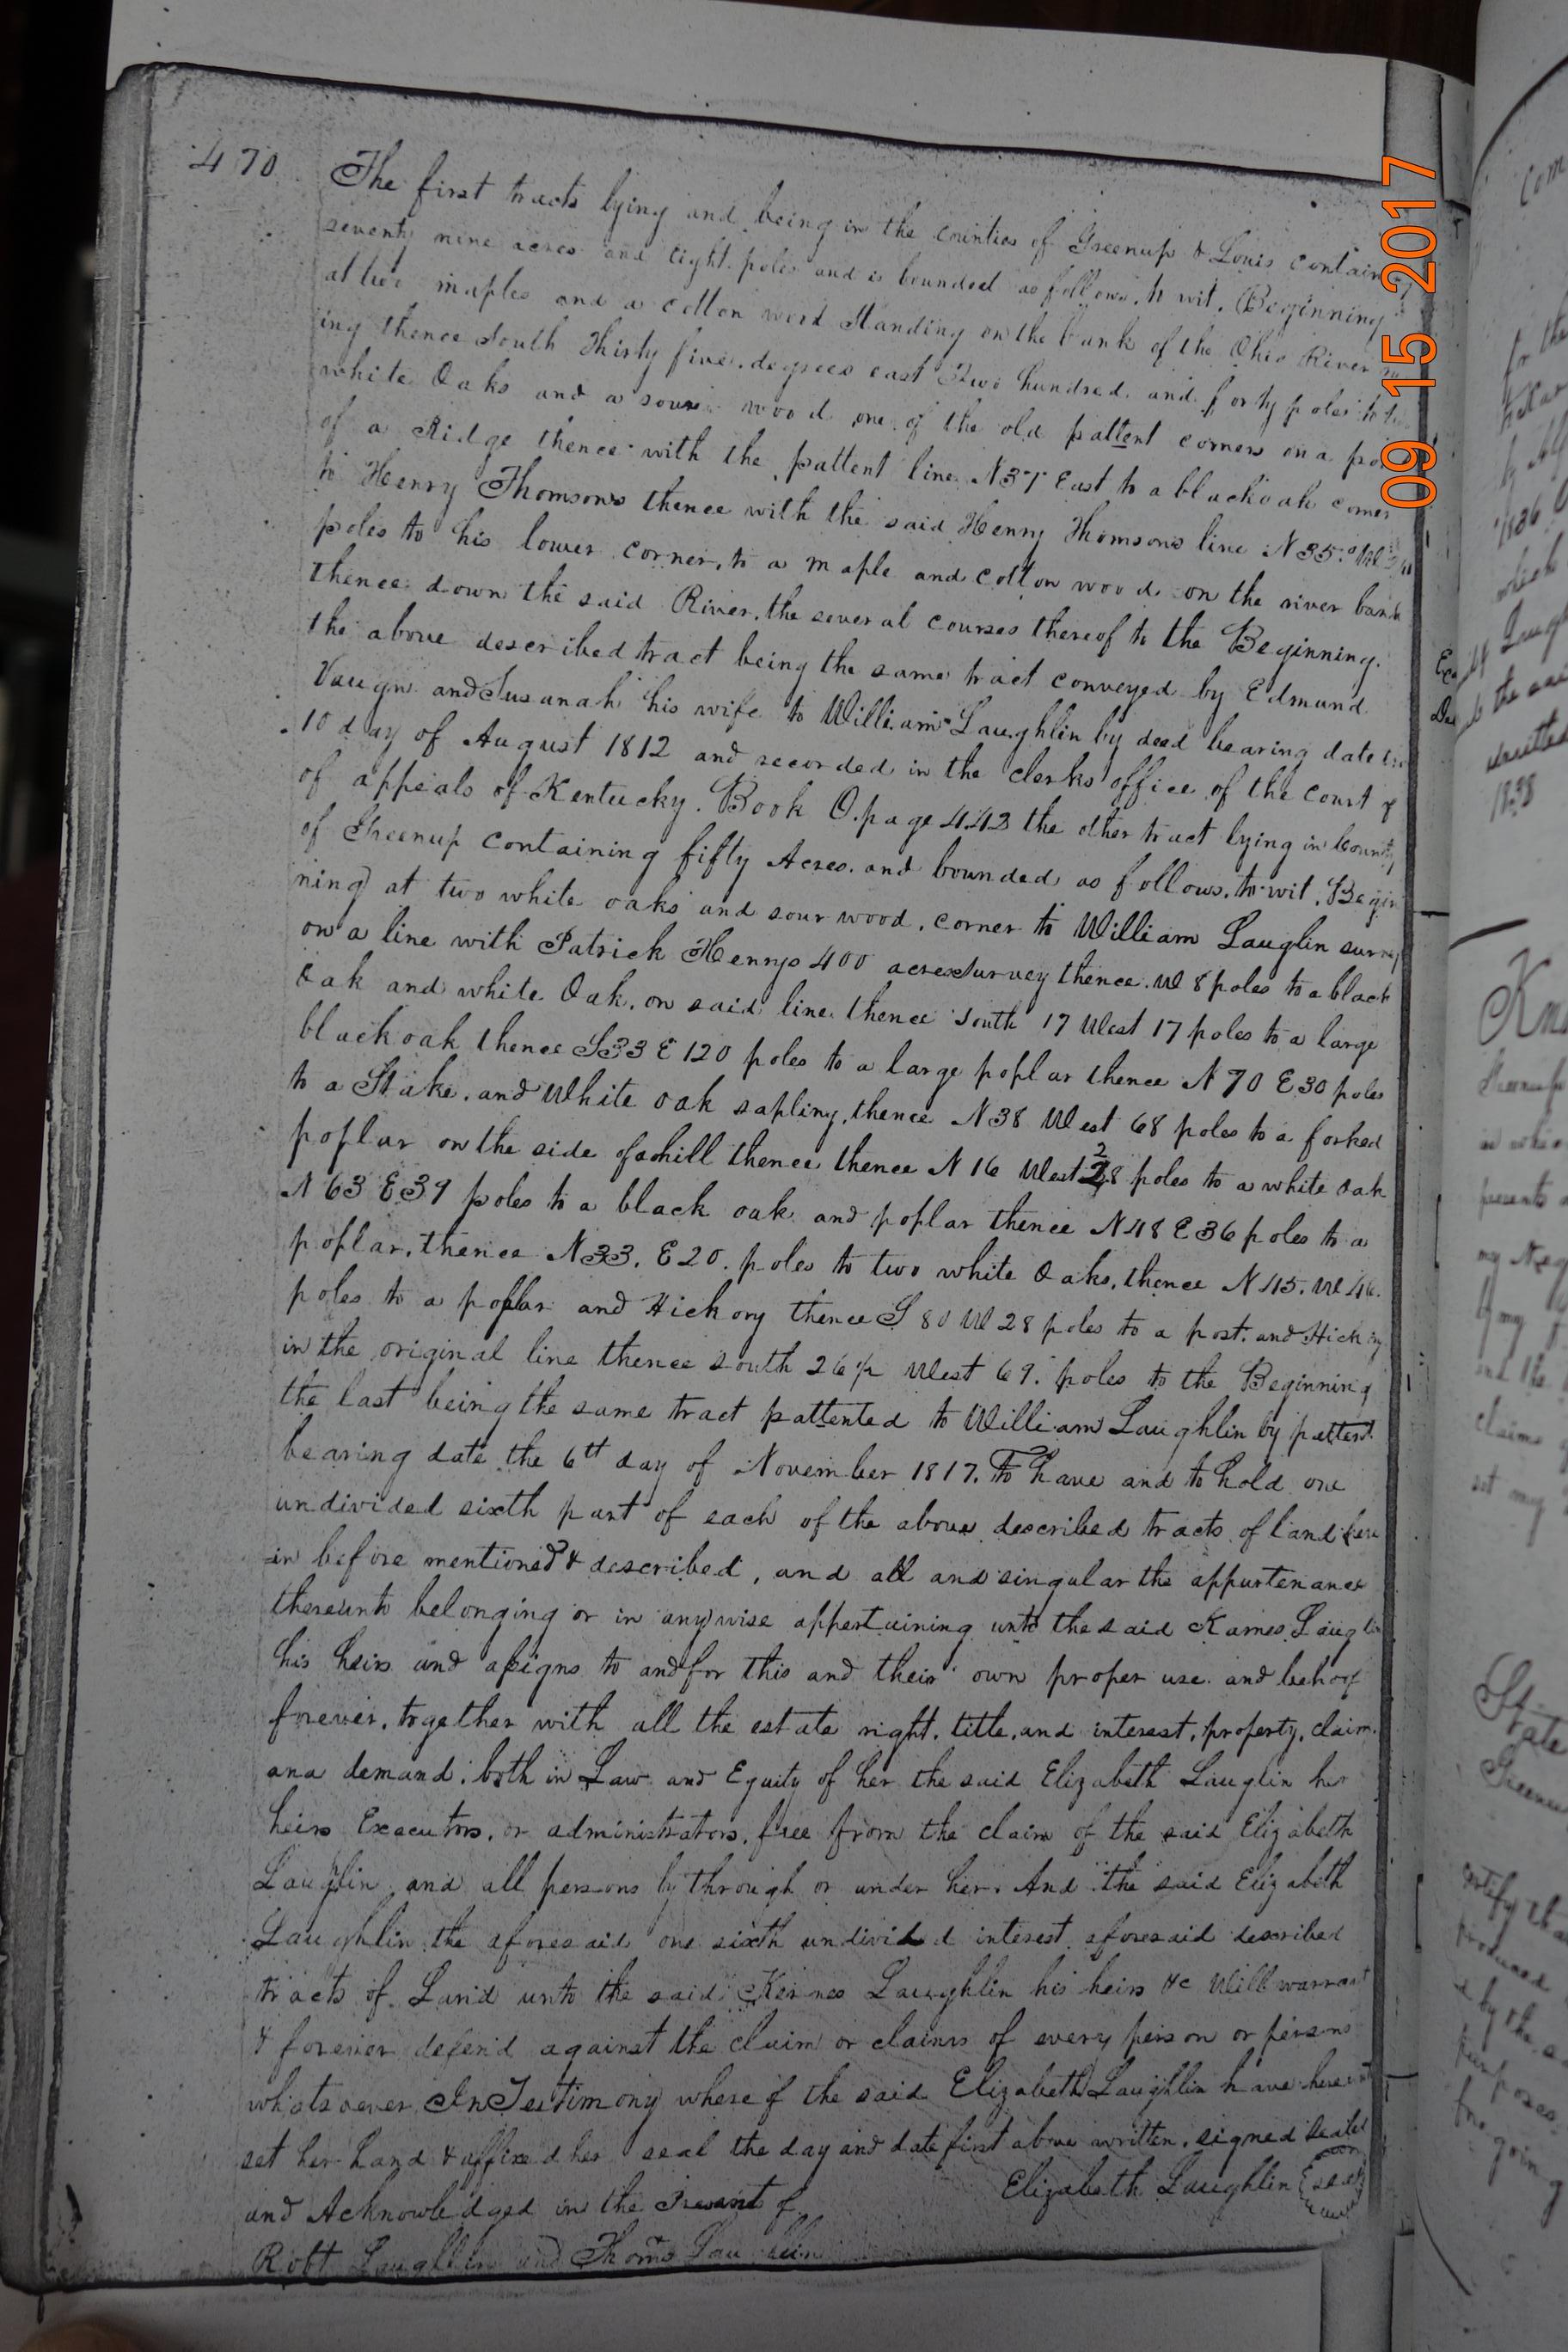 470
The first tracts lying and being in the counties of Greenup & Louis contain
seventy nine acres and eight poles and is bounded as follows, to wit, Beginning
at two maples and a cotton wood standing on the bank of the Ohio River
ing thence South Thirty five degrees east Two hundred and forty poles to
white Oaks and a sour wood one of the old pattent corners on a
of a Ridge thence with the pattent line N37 East to a black oak corner
to Henry Thomsons thence with the said Henry Thomsons line N35°
poles to his lower corner, to a maple and cotton wood on the river bank
thence down the said River, the several courses thereof to the Beginning.
the above described tract being the same tract conveyed by Edmund
Vaugn and Susanah his wife to William Laughlin by deed bearing date
10 day of August 1812 and recorded in the clerks office of the court
of appeals of Kentucky. Book O. page 443 the other tract lying in County
of Greenup containing fifty Acres. and bounded as follows, to wit, Begin
ning at two white oaks and sour wood, corner to William Lauglin survey
on a line with Patrick Henrys 400 acres Survey thence W 8 poles to a black
Oak and white Oak, on said line thence South 17 West 17 poles to a large
black oak thence S33 E 120 poles to a large poplar thence N 70 E 30 poles
to a Stake. and White oak sapling, thence N38 West 68 poles to a forked
poplar on the side of a hill thence thence N 16 West 28 poles to a white Oak
N 63 E 39 poles to a black oak and poplar thence N48 E 36 poles to a
poplar, thence N33. E 20. poles to two white Oaks, thence N45. W 46.
poles to a poplar and Hickory thence S 80 W 28 poles to a post. and Hickory
in the original line thence South 26½ West 69. poles to the Beginning
the last being the same tract pattented to William Laughlin by pattent
bearing date the 6th day of November 1817. To have and to hold one
undivided sixth part of each of the above described tracts of land here
in before mentioned & described, and all and singular the appurtenances
thereunto belonging or in anywise appertaining unto the said Karnes Lauglin
his heirs and assigns to and for this and their own proper use and behoof
forever, together with all the estate right, title, and interest, property, claim.
and demand, both in Law and Equity of her the said Elizabeth Lauglin her
heirs Executors, or administrators, free from the claim of the said Elizabeth
Lauglin and all persons by through or under her. And the said Elizabeth
Laughlin the aforesaid one sixth undivided interest aforesaid described
tracts of Land unto the said Karnes Laughlin his heirs &c Will warrant
& forever defend against the claim or claims of every person or persons
whatsoever In Testimony where of the said Elizabeth Laughlin have hereunto
set her hand & affixed her seal the day and date first above written. signed sealed
and Acknowledged in the Present of Elizabeth Laughlin seal
Robt Laughlin and Thoms Laughlin
09 15 2017